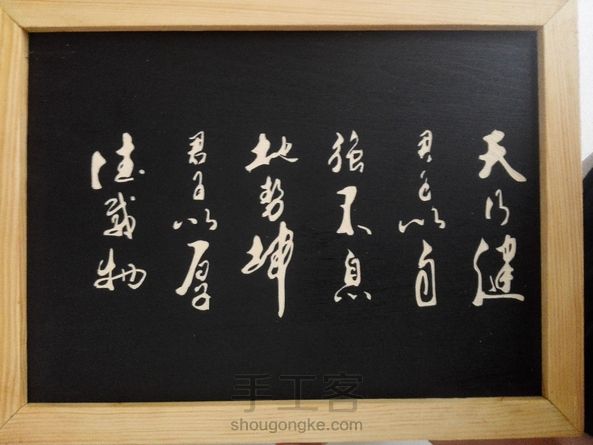 天行健
君子以自
强不息
地势坤
君子以厚
德载物
手工客
shougongke.com